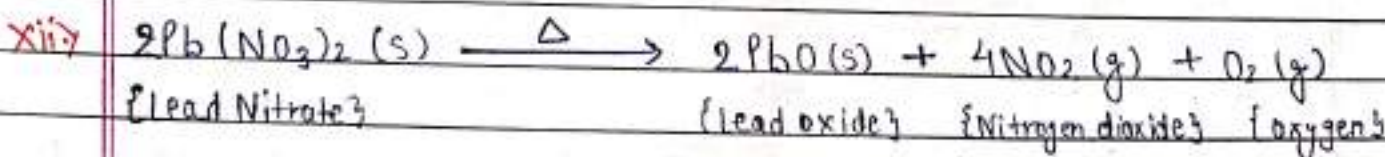 xii) 2Pb(NO₃)₂ (s) —Δ→ 2PbO(s) + 4NO₂(g) + O₂(g)
{Lead Nitrate} {lead oxide} {Nitrogen dioxide} {oxygen}